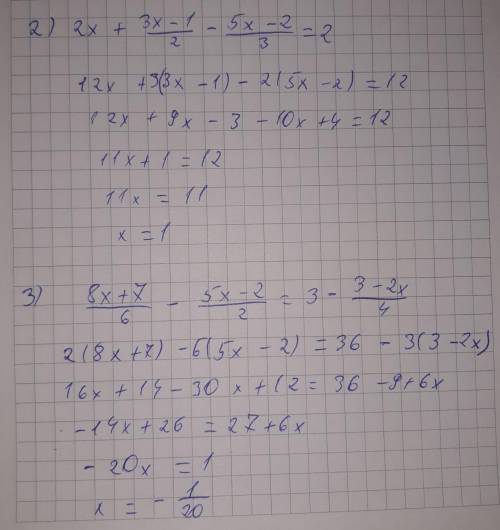 2) 2x + \frac{3x - 1}{2} - \frac{5x - 2}{3} = 2
12x + 3(3x - 1) - 2(5x - 2) = 12
12x + 9x - 3 - 10x + 4 = 12
11x + 1 = 12
11x = 11
x = 1
3) \frac{8x + 7}{6} - \frac{5x - 2}{2} = 3 - \frac{3 - 2x}{4}
2(8x + 7) - 6(5x - 2) = 36 - 3(3 - 2x)
16x + 14 - 30x + 12 = 36 - 9 + 6x
-14x + 26 = 27 + 6x
-20x = 1
x = -\frac{1}{20}